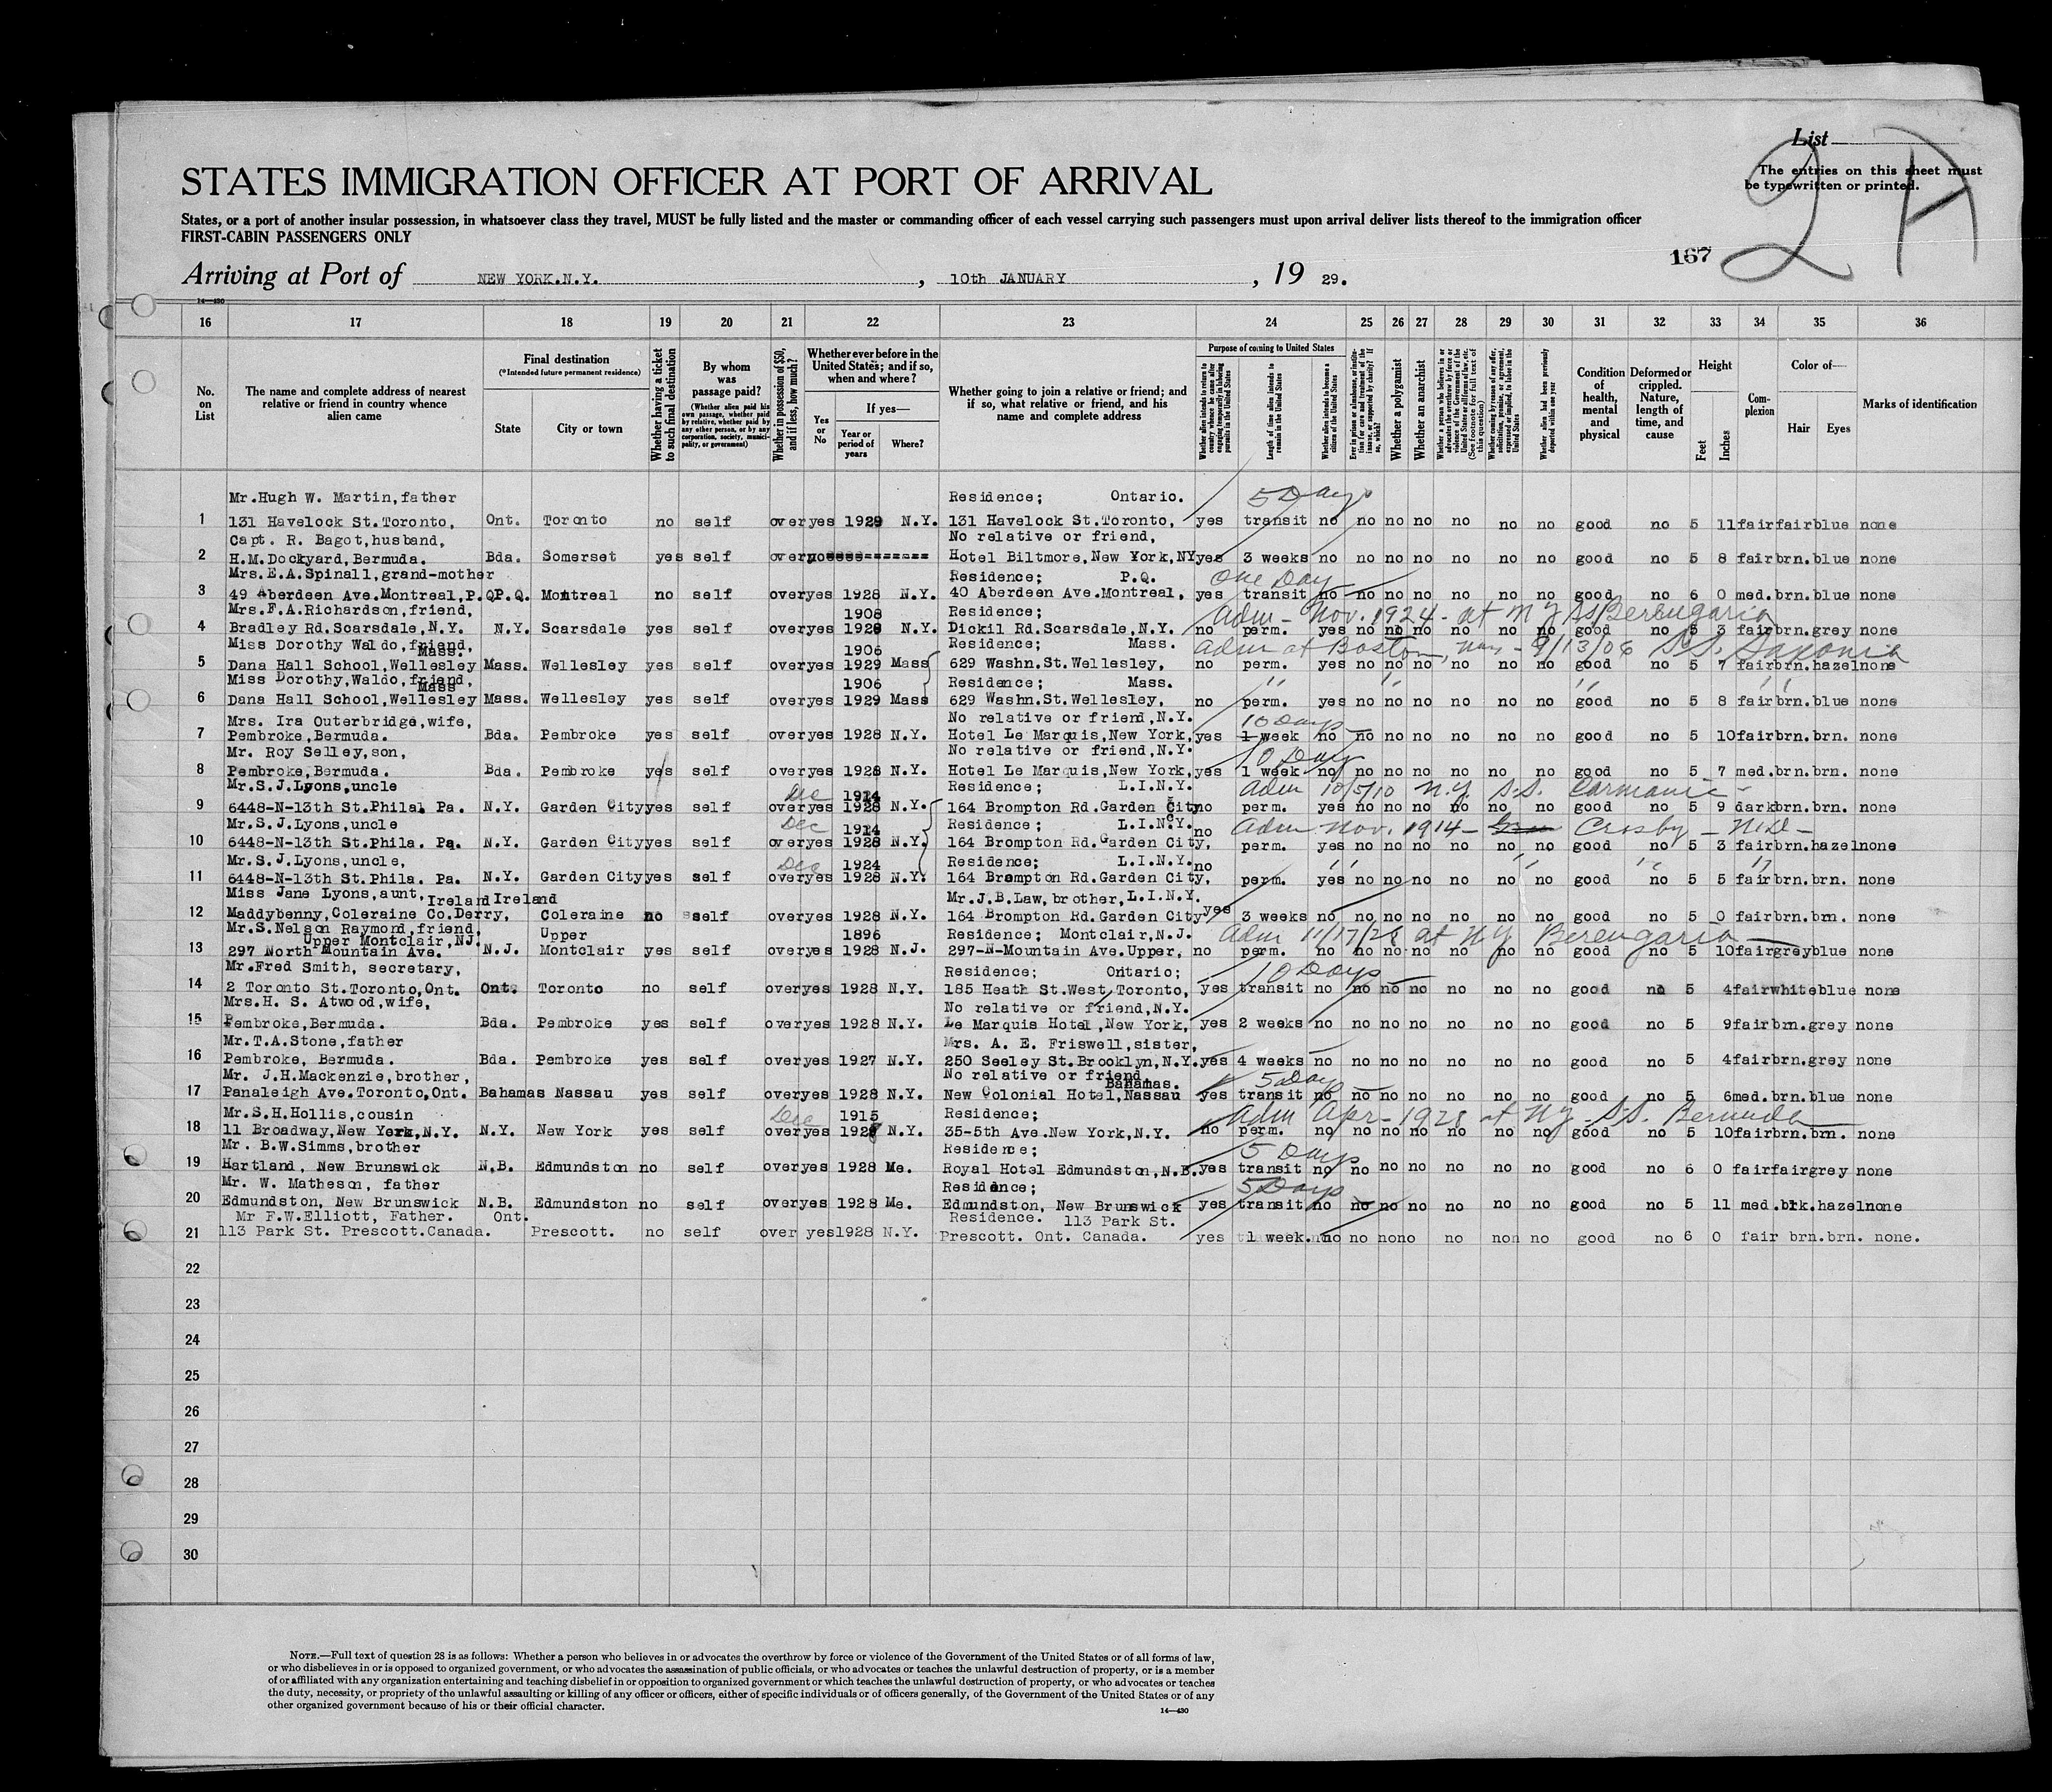 List
The entries on this sheet must
be typewritten or printed.
2 A
STATES IMMIGRATION OFFICER AT PORT OF ARRIVAL
States, or a port of another insular possession, in whatsoever class they travel, MUST be fully listed and the master or commanding officer of each vessel carrying such passengers must upon arrival deliver lists thereof to the immigration officer
FIRST-CABIN PASSENGERS ONLY
167
Arriving at Port of NEW YORK.N.Y. , 10th JANUARY , 19 29.
14—430
16 17 18 19 20 21 22 23 24 25 26 27 28 29 30 31 32 33 34 35 36
No. on List
The name and complete address of nearest relative or friend in country whence alien came
Final destination
(*Intended future permanent residence)
State City or town
Whether having a ticket to such final destination
By whom was passage paid?
(Whether alien paid his own passage, whether paid by relative, whether paid by any other person, or by any corporation, society, municipality, or government)
Whether in possession of $50, and if less, how much?
Whether ever before in the United States; and if so, when and where?
Yes or No
If yes—
Year or period of years Where?
Whether going to join a relative or friend; and if so, what relative or friend, and his name and complete address
Purpose of coming to United States
Whether alien intends to return to country whence he came after engaging temporarily in laboring pursuits in the United States
Length of time alien intends to remain in the United States
Whether alien intends to become a citizen of the United States
Ever in prison or almshouse, or institution for care and treatment of the insane, or supported by charity? If so, which?
Whether a polygamist
Whether an anarchist
Whether a person who believes in or advocates the overthrow by force or violence of the Government of the United States or all forms of law, etc. (See footnote for full text of this question)
Whether coming by reason of any offer, solicitation, promise, or agreement, expressed or implied, to labor in the United States
Whether alien had been previously deported within one year
Condition of health, mental and physical
Deformed or crippled. Nature, length of time, and cause
Height
Feet Inches
Complexion
Color of—
Hair Eyes
Marks of identification
Mr.Hugh W. Martin,father Residence; Ontario. 5 Days
1 131 Havelock St.Toronto, Ont. Toronto no self over yes 1929 N.Y. 131 Havelock St.Toronto, yes transit no no no no no no no good no 5 11 fair fair blue none
Capt. R. Bagot,husband, No relative or friend,
2 H.M.Dockyard,Bermuda. Bda. Somerset yes self over no Hotel Biltmore,New York,NY yes 3 weeks no no no no no no no good no 5 8 fair brn. blue none
Mrs.E.A.Spinall,grand-mother Residence; P.Q. One Day
3 49 Aberdeen Ave.Montreal,P.Q P.Q. Montreal no self over yes 1928 N.Y. 40 Aberdeen Ave.Montreal, yes transit no no no no no no no good no 6 0 med. brn. blue none
Mrs.F.A.Richardson,friend, 1908 Residence; Adm - Nov. 1924 - at N Y SS Berengaria
4 Bradley Rd.Scarsdale,N.Y. N.Y. Scarsdale yes self over yes 1928 N.Y. Dickil Rd.Scarsdale,N.Y. no perm. yes no no no no no no good no 5 3 fair brn. grey none
Miss Dorothy Waldo,friend, Mass. 1906 Residence; Mass. Adm at Boston, 9/13/06 S.S. Saxonia
5 Dana Hall School,Wellesley Mass. Wellesley yes self over yes 1929 Mass 629 Washn.St.Wellesley, no perm. yes no no no no no no good no 5 7 fair brn. hazel none
Miss Dorothy,Waldo,friend, Mass 1906 Residence; Mass. " " " "
6 Dana Hall School,Wellesley Mass. Wellesley yes self over yes 1929 Mass 629 Washn.St.Wellesley, no perm. yes no no no no no no good no 5 8 fair brn. blue none
Mrs. Ira Outerbridge,wife, No relative or friend,N.Y. 10 Days
7 Pembroke,Bermuda. Bda. Pembroke yes self over yes 1928 N.Y. Hotel Le Marquis,New York, yes 1 week no no no no no no no good no 5 10 fair brn. brn. none
Mr. Roy Selley,son, No relative or friend,N.Y. 10 Days
8 Pembroke,Bermuda. Bda. Pembroke yes self over yes 1928 N.Y. Hotel Le Marquis,New York, yes 1 week no no no no no no no good no 5 7 med. brn. brn. none
Mr.S.J.Lyons,uncle Dec 1914 Residence; L.I.N.Y. Adm 10/5/10 N.Y. S.S. Carmania
9 6448-N-13th St.Phila. Pa. N.Y. Garden City yes self over yes 1928 N.Y. 164 Brompton Rd.Garden City no perm. yes no no no no no no good no 5 9 dark brn. brn. none
Mr.S.J.Lyons,uncle Dec 1914 Residence; L.I.N.Y. Adm Nov. 1914 - Crosby - N.D -
10 6448-N-13th St.Phila. Pa. N.Y. Garden City yes self over yes 1928 N.Y. 164 Brompton Rd.Garden City, no perm. yes no no no no no no good no 5 3 fair brn. hazel none
Mr.S.J.Lyons,uncle, Dec 1924 Residence; L.I.N.Y. " " " "
11 6448-N-13th St.Phila. Pa. N.Y. Garden City yes self over yes 1928 N.Y. 164 Brompton Rd.Garden City, no perm. yes no no no no no no good no 5 5 fair brn. brn. none
Miss Jane Lyons,aunt, Ireland Ireland Mr.J.B.Law,brother,L.I.N.Y.
12 Maddybenny,Coleraine Co.Derry, Coleraine no self over yes 1928 N.Y. 164 Brompton Rd.Garden City yes 3 weeks no no no no no no no good no 5 0 fair brn. brn. none
Mr.S.Nelson Raymond,friend, Upper Montclair,NJ. Upper 1896 Residence; Montclair,N.J. Adm 11/17/28 at N.Y Berengaria
13 297 North Mountain Ave. N.J. Montclair yes self over yes 1928 N.J. 297-N-Mountain Ave.Upper, no perm. no no no no no no no good no 5 10 fair grey blue none
Mr.Fred Smith, secretary, Residence; Ontario; 10 Days
14 2 Toronto St.Toronto,Ont. Ont. Toronto no self over yes 1928 N.Y. 185 Heath St.West,Toronto, yes transit no no no no no no no good no 5 4 fair white blue none
Mrs.H. S. Atwood,wife, No relative or friend,N.Y.
15 Pembroke,Bermuda. Bda. Pembroke yes self over yes 1928 N.Y. Le Marquis Hotel,New York, yes 2 weeks no no no no no no no good no 5 9 fair brn. grey none
Mr.T.A.Stone,father Mrs. A. E. Friswell,sister,
16 Pembroke, Bermuda. Bda. Pembroke yes self over yes 1927 N.Y. 250 Seeley St.Brooklyn,N.Y. yes 4 weeks no no no no no no no good no 5 4 fair brn. grey none
Mr. J.H.Mackenzie,brother, No relative or friend, Bahamas. 5 Days
17 Panaleigh Ave.Toronto,Ont. Bahamas Nassau yes self over yes 1928 N.Y. New Colonial Hotel,Nassau yes transit no no no no no no no good no 5 6 med. brn. blue none
Mr.S.H.Hollis,cousin Dec 1915 Residence; Adm Apr - 1928 at N.Y. S.S. Bermuda
18 11 Broadway,New York,N.Y. N.Y. New York yes self over yes 1928 N.Y. 35-5th Ave.New York,N.Y. no perm. no no no no no no no good no 5 10 fair brn. brn. none
Mr. B.W.Simms,brother Residence; 5 Days
19 Hartland, New Brunswick N.B. Edmundston no self over yes 1928 Me. Royal Hotel Edmundston,N.B. yes transit no no no no no no no good no 6 0 fair fair grey none
Mr. W. Matheson, father Residence; 5 Days
20 Edmundston, New Brunswick N.B. Edmundston no self over yes 1928 Me. Edmundston, New Brunswick yes transit no no no no no no no good no 5 11 med. blk. hazel none
Mr F.W.Elliott, Father. Ont. Residence. 113 Park St.
21 113 Park St. Prescott.Canada. Prescott. no self over yes 1928 N.Y. Prescott. Ont. Canada. yes 1 week. no no no no no no no good no 6 0 fair brn. brn. none.
22
23
24
25
26
27
28
29
30
NOTE.—Full text of question 28 is as follows: Whether a person who believes in or advocates the overthrow by force or violence of the Government of the United States or of all forms of law,
or who disbelieves in or is opposed to organized government, or who advocates the assassination of public officials, or who advocates or teaches the unlawful destruction of property, or is a member
of or affiliated with any organization entertaining and teaching disbelief in or opposition to organized government or which teaches the unlawful destruction of property, or who advocates or teaches
the duty, necessity, or propriety of the unlawful assaulting or killing of any officer or officers, either of specific individuals or of officers generally, of the Government of the United States or of any
other organized government because of his or their official character.
14—430